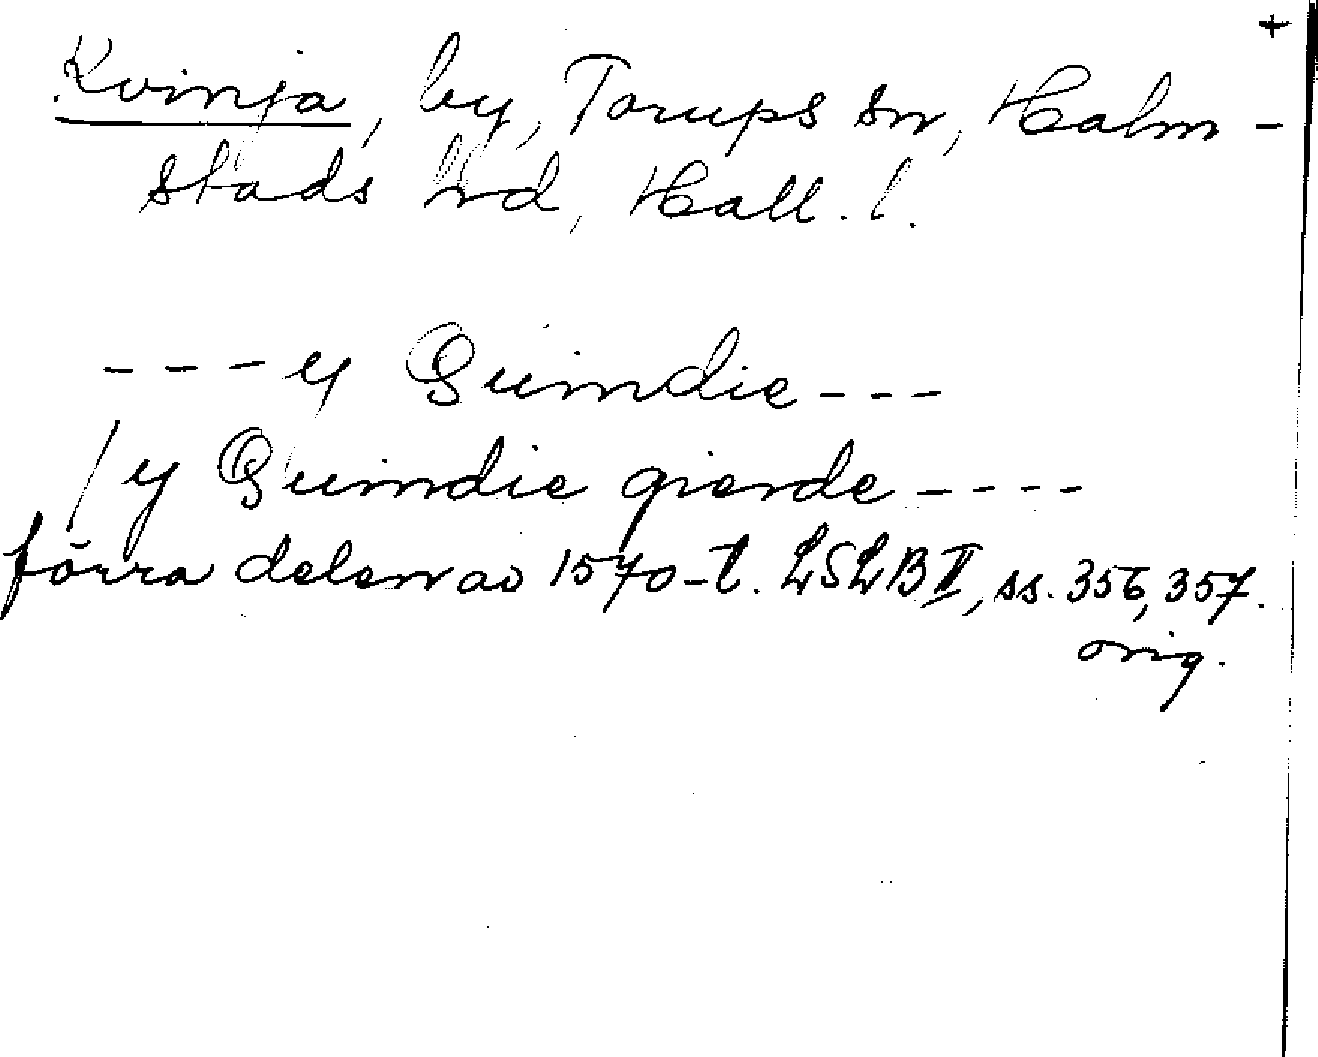 +
Kvinja, by, Torups sn, Halm-
stads hd, Hall. l.
---y Quindie---
/y Quindie gierde----
förra delen av 1570-t. LSLB II, ss. 356, 357.
orig.